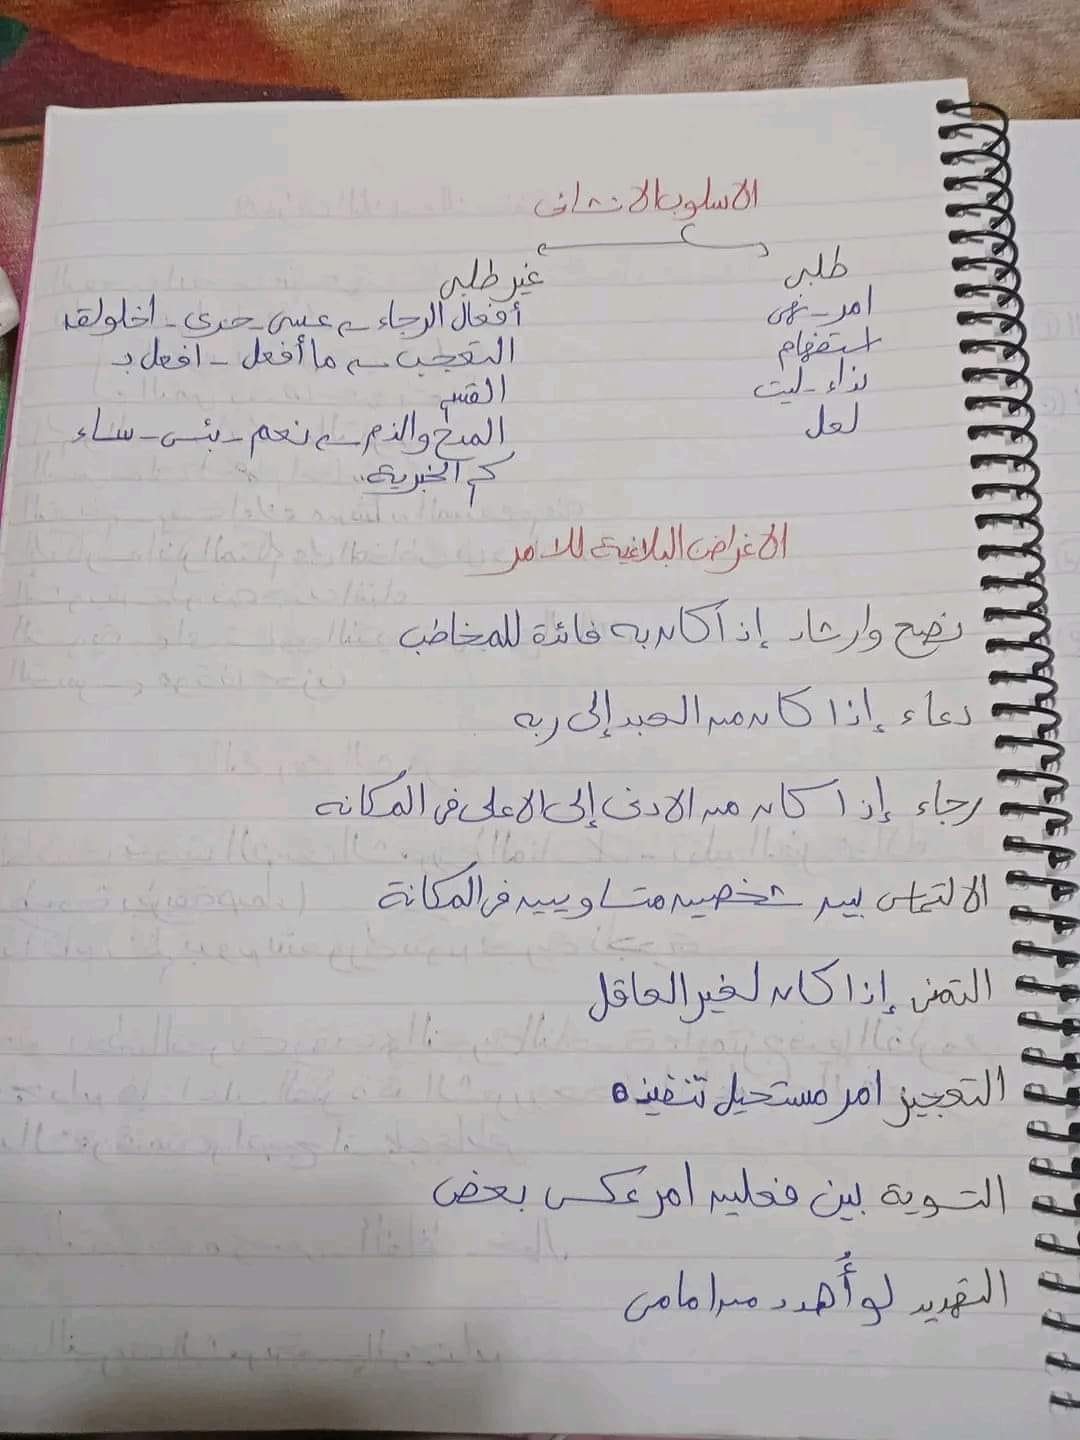 الاسلوب الانشائى
طلبى
غير طلبى
امر - نهى
أفعال الرجاء ← عسى - حرى - اخلولق
استفهام
التعجب ← ما أفعل - افعل بـ
نداء - ليت
القسم
لعل
المدح والذم ← نعم - بئس - ساء
كم الخبرية.
الاغراض البلاغية للامر
نصح وارشاد إذا كان به فائدة للمخاطب
دعاء إذا كان من العبد إلى ربه
رجاء إذا كان من الادنى إلى الاعلى فى المكانه
الالتماس بين شخصين متساويين فى المكانة
التمنى إذا كان لغير العاقل
التعجيز امر مستحيل تنفيذه
التسوية بين فعلين امر عكس بعض
التهديد لو أُهدد من امامى